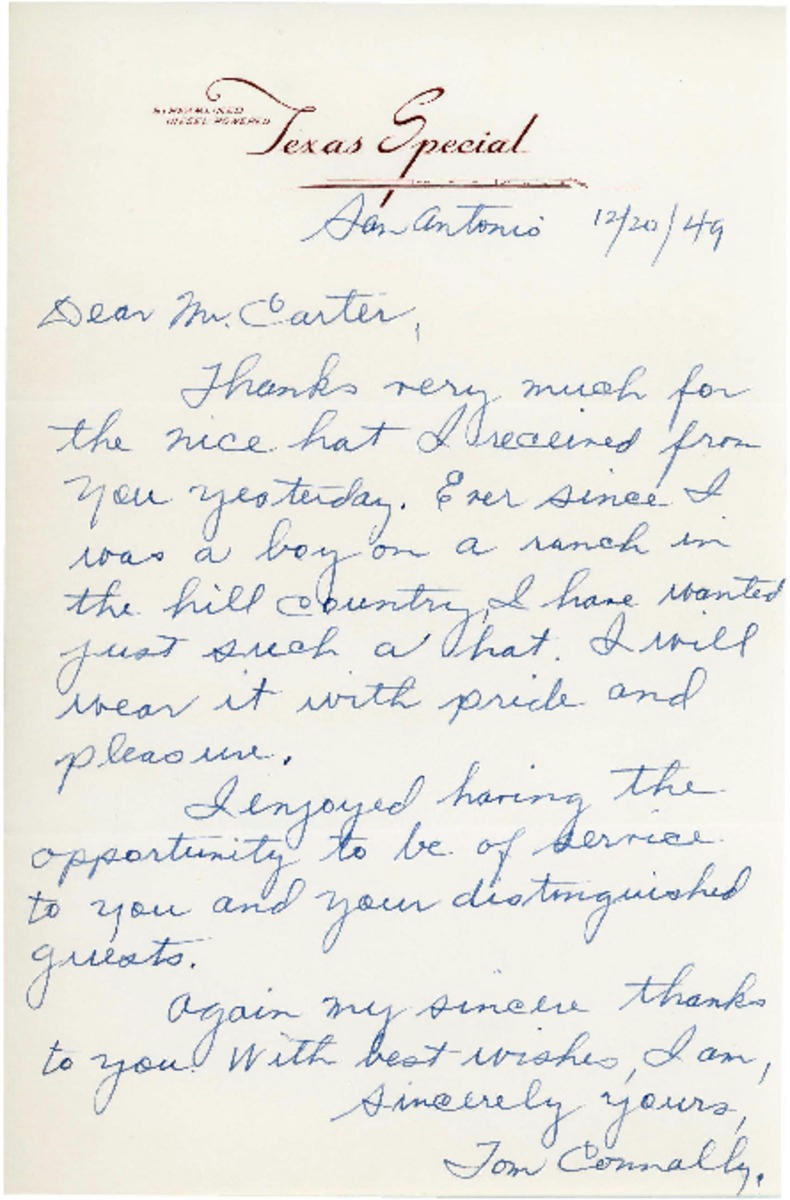 STREAMLINED
DIESEL-POWERED
Texas Special
San Antonio 12/20/49
Dear Mr. Carter,
Thanks very much for
the nice hat I received from
you yesterday. Ever since I
was a boy on a ranch in
the hill country, I have wanted
just such a hat. I will
wear it with pride and
pleasure.
I enjoyed having the
opportunity to be of service
to you and your distinguished
guests.
Again my sincere thanks
to you. With best wishes, I am,
Sincerely yours,
Tom Connally.